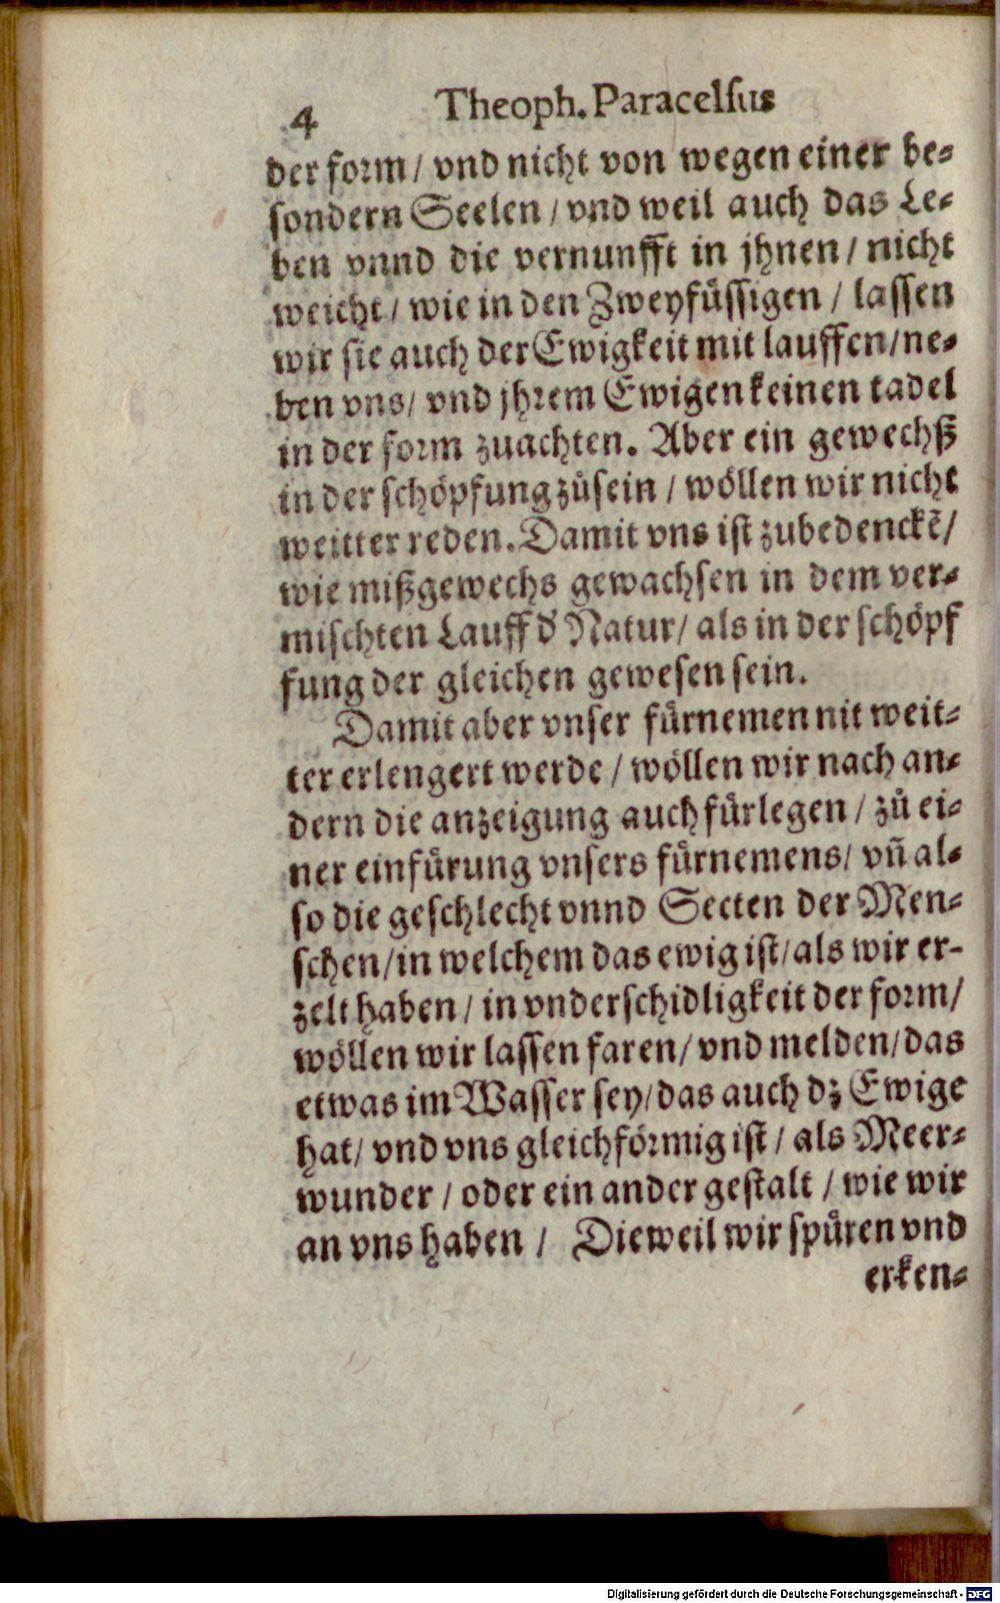 4 Theoph. Paracelſus
der form/ vnd nicht von wegen einer be⸗
ſondern Seelen/ vnd weil auch das Le⸗
ben vnnd die vernunfft in jhnen/ nicht
weicht/ wie in den Zweyfüſſigen/ laſſen
wir ſie auch der Ewigkeit mit lauffen/ ne⸗
ben vns/ vnd jhrem Ewigen keinen tadel
in der form zuachten. Aber ein gewechß
in der ſchöpfung zůſein/ wöllen wir nicht
weitter reden. Damit vns iſt zubedenckẽ/
wie mißgewechs gewachſen in dem ver⸗
miſchten Lauff d' Natur/ als in der ſchöpf
fung der gleichen geweſen ſein.
Damit aber vnſer fürnemen nit weit⸗
ter erlengert werde/ wöllen wir nach an⸗
dern die anzeigung auch fürlegen/ zů ei⸗
ner einfürung vnſers fürnemens/ vñ al⸗
ſo die geſchlecht vnnd Secten der Men⸗
ſchen/ in welchem das ewig iſt/ als wir er-
zelt haben/ in vnderſchidligkeit der form/
wöllen wir laſſen faren/ vnd melden/ das
etwas im Waſſer ſey/ das auch dz Ewige
hat/ vnd vns gleichförmig iſt/ als Meer⸗
wunder/ oder ein ander geſtalt/ wie wir
an vns haben/ Dieweil wir ſpüren vnd
erken⸗
Digitalisierung gefördert durch die Deutsche Forschungsgemeinschaft - DFG